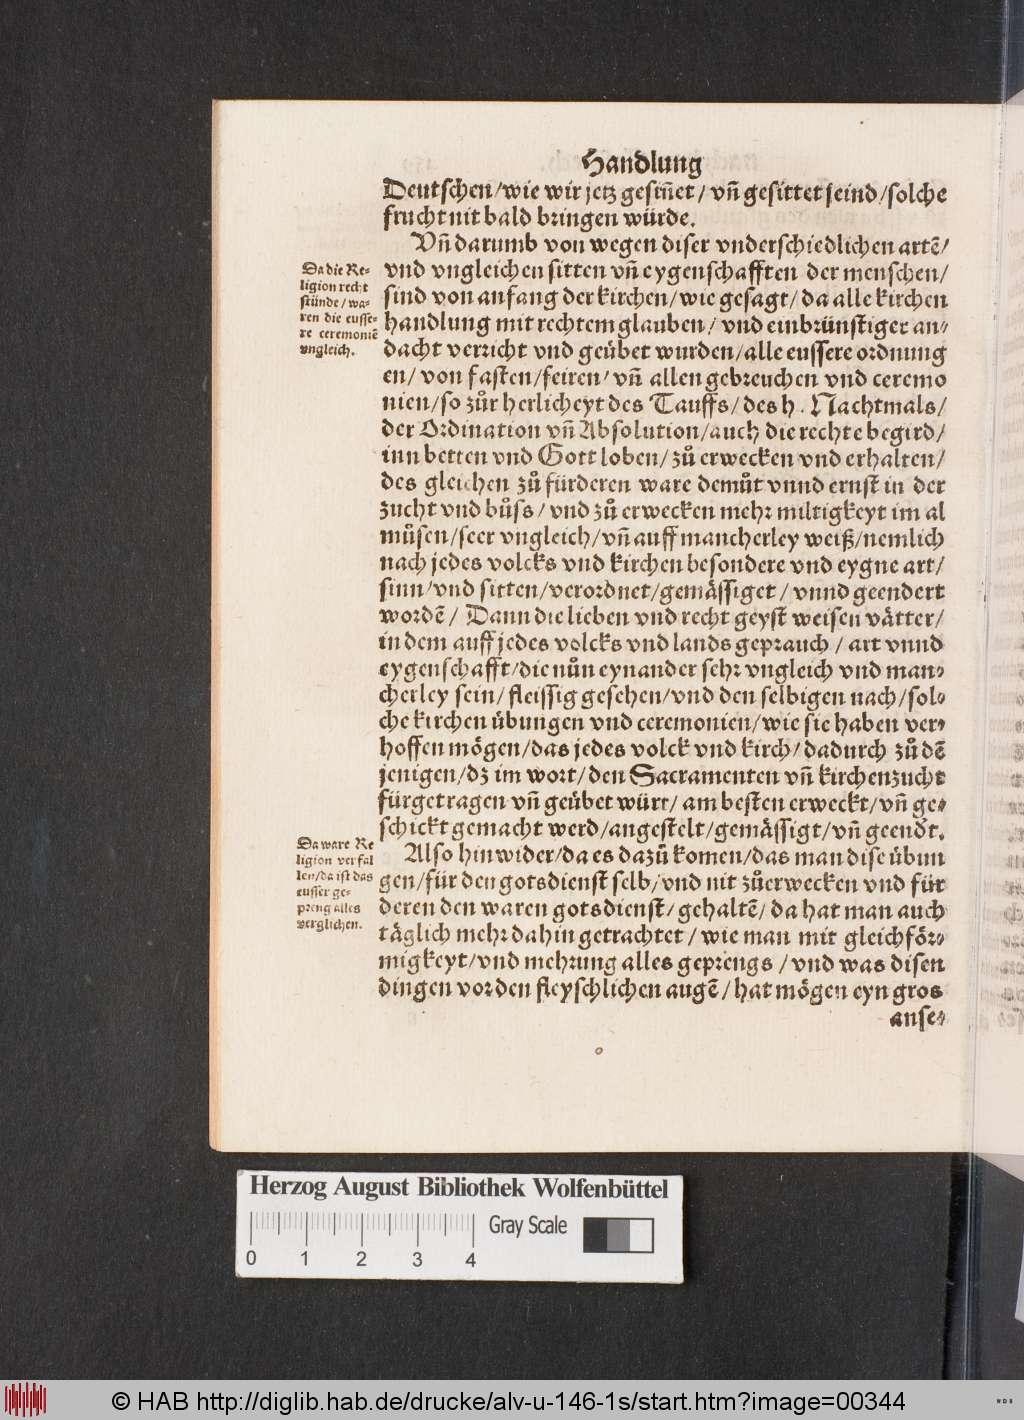 Handlung
Deutschen/wie wir jetz gesiñet/ vñ gesittet seind/solche
frucht nit bald bringen würde.
Vñ darumb von wegen diser vnderschiedlichen artẽ/
vnd vngleichen sitten vñ eygenschafften der menschen/
sind von anfang der kirchen/wie gesagt/da alle kirchen
handlung mit rechtem glauben/ vnd einbrünstiger an-
dacht verricht vnd geübet wurden/alle eussere ordnung
en/ von fasten/feiren/ vñ allen gebreuchen vnd ceremo
nien/so zůr herlicheyt des Tauffs/des h. Nachtmals/
der Ordination vñ Absolution/auch die rechte begird/
inn betten vnd Gott loben/zů erwecken vnd erhalten/
des gleichen zů fürderen ware demůt vnnd ernst in der
zucht vnd bůss/ vnd zů erwecken mehr miltigkeyt im al
můsen/seer vngleich/vñ auff mancherley weiß/nemlich
nach jedes volcks vnd kirchen besondere vnd eygne art/
sinn/vnd sitten/verordnet/gemässiget/ vnnd geendert
wordẽ/ Dann die lieben vnd recht geyst weisen vätter/
in dem auff jedes volcks vnd lands geprauch/ art vnnd
eygenschafft/die nůn eynander sehr vngleich vnd man-
cherley sein/ fleissig gesehen/vnd den selbigen nach/sol-
che kirchen übungen vnd ceremonien/wie sie haben ver-
hoffen mögen/das jedes volck vnd kirch/dadurch zů dẽ
jenigen/dz im wort/den Sacramenten vñ kirchenzucht
fürgetragen vñ geübet würt/ am besten erweckt/vñ ge-
schickt gemacht werd/angestelt/gemässigt/vñ geendt.
Also hinwider/da es dazů komen/das man dise übun
gen/für den gotsdienst selb/vnd nit zůerwecken vnd für
deren den waren gotsdienst/gehaltẽ/da hat man auch
täglich mehr dahin getrachtet/wie man mit gleichför-
migkeyt/vnd mehrung alles geprengs/vnd was disen
dingen vor den fleyschlichen augẽ/hat mögen eyn gros
anse-
Da die Re-
ligion recht
stünde/wa-
ren die eusse-
re ceremoniẽ
vngleich.
Da ware Re
ligion verfal
len/da ist das
eusser ge-
preng alles
verglichen.
Herzog August Bibliothek Wolfenbüttel
Gray Scale
0 1 2 3 4
© HAB http://diglib.hab.de/drucke/alv-u-146-1s/start.htm?image=00344